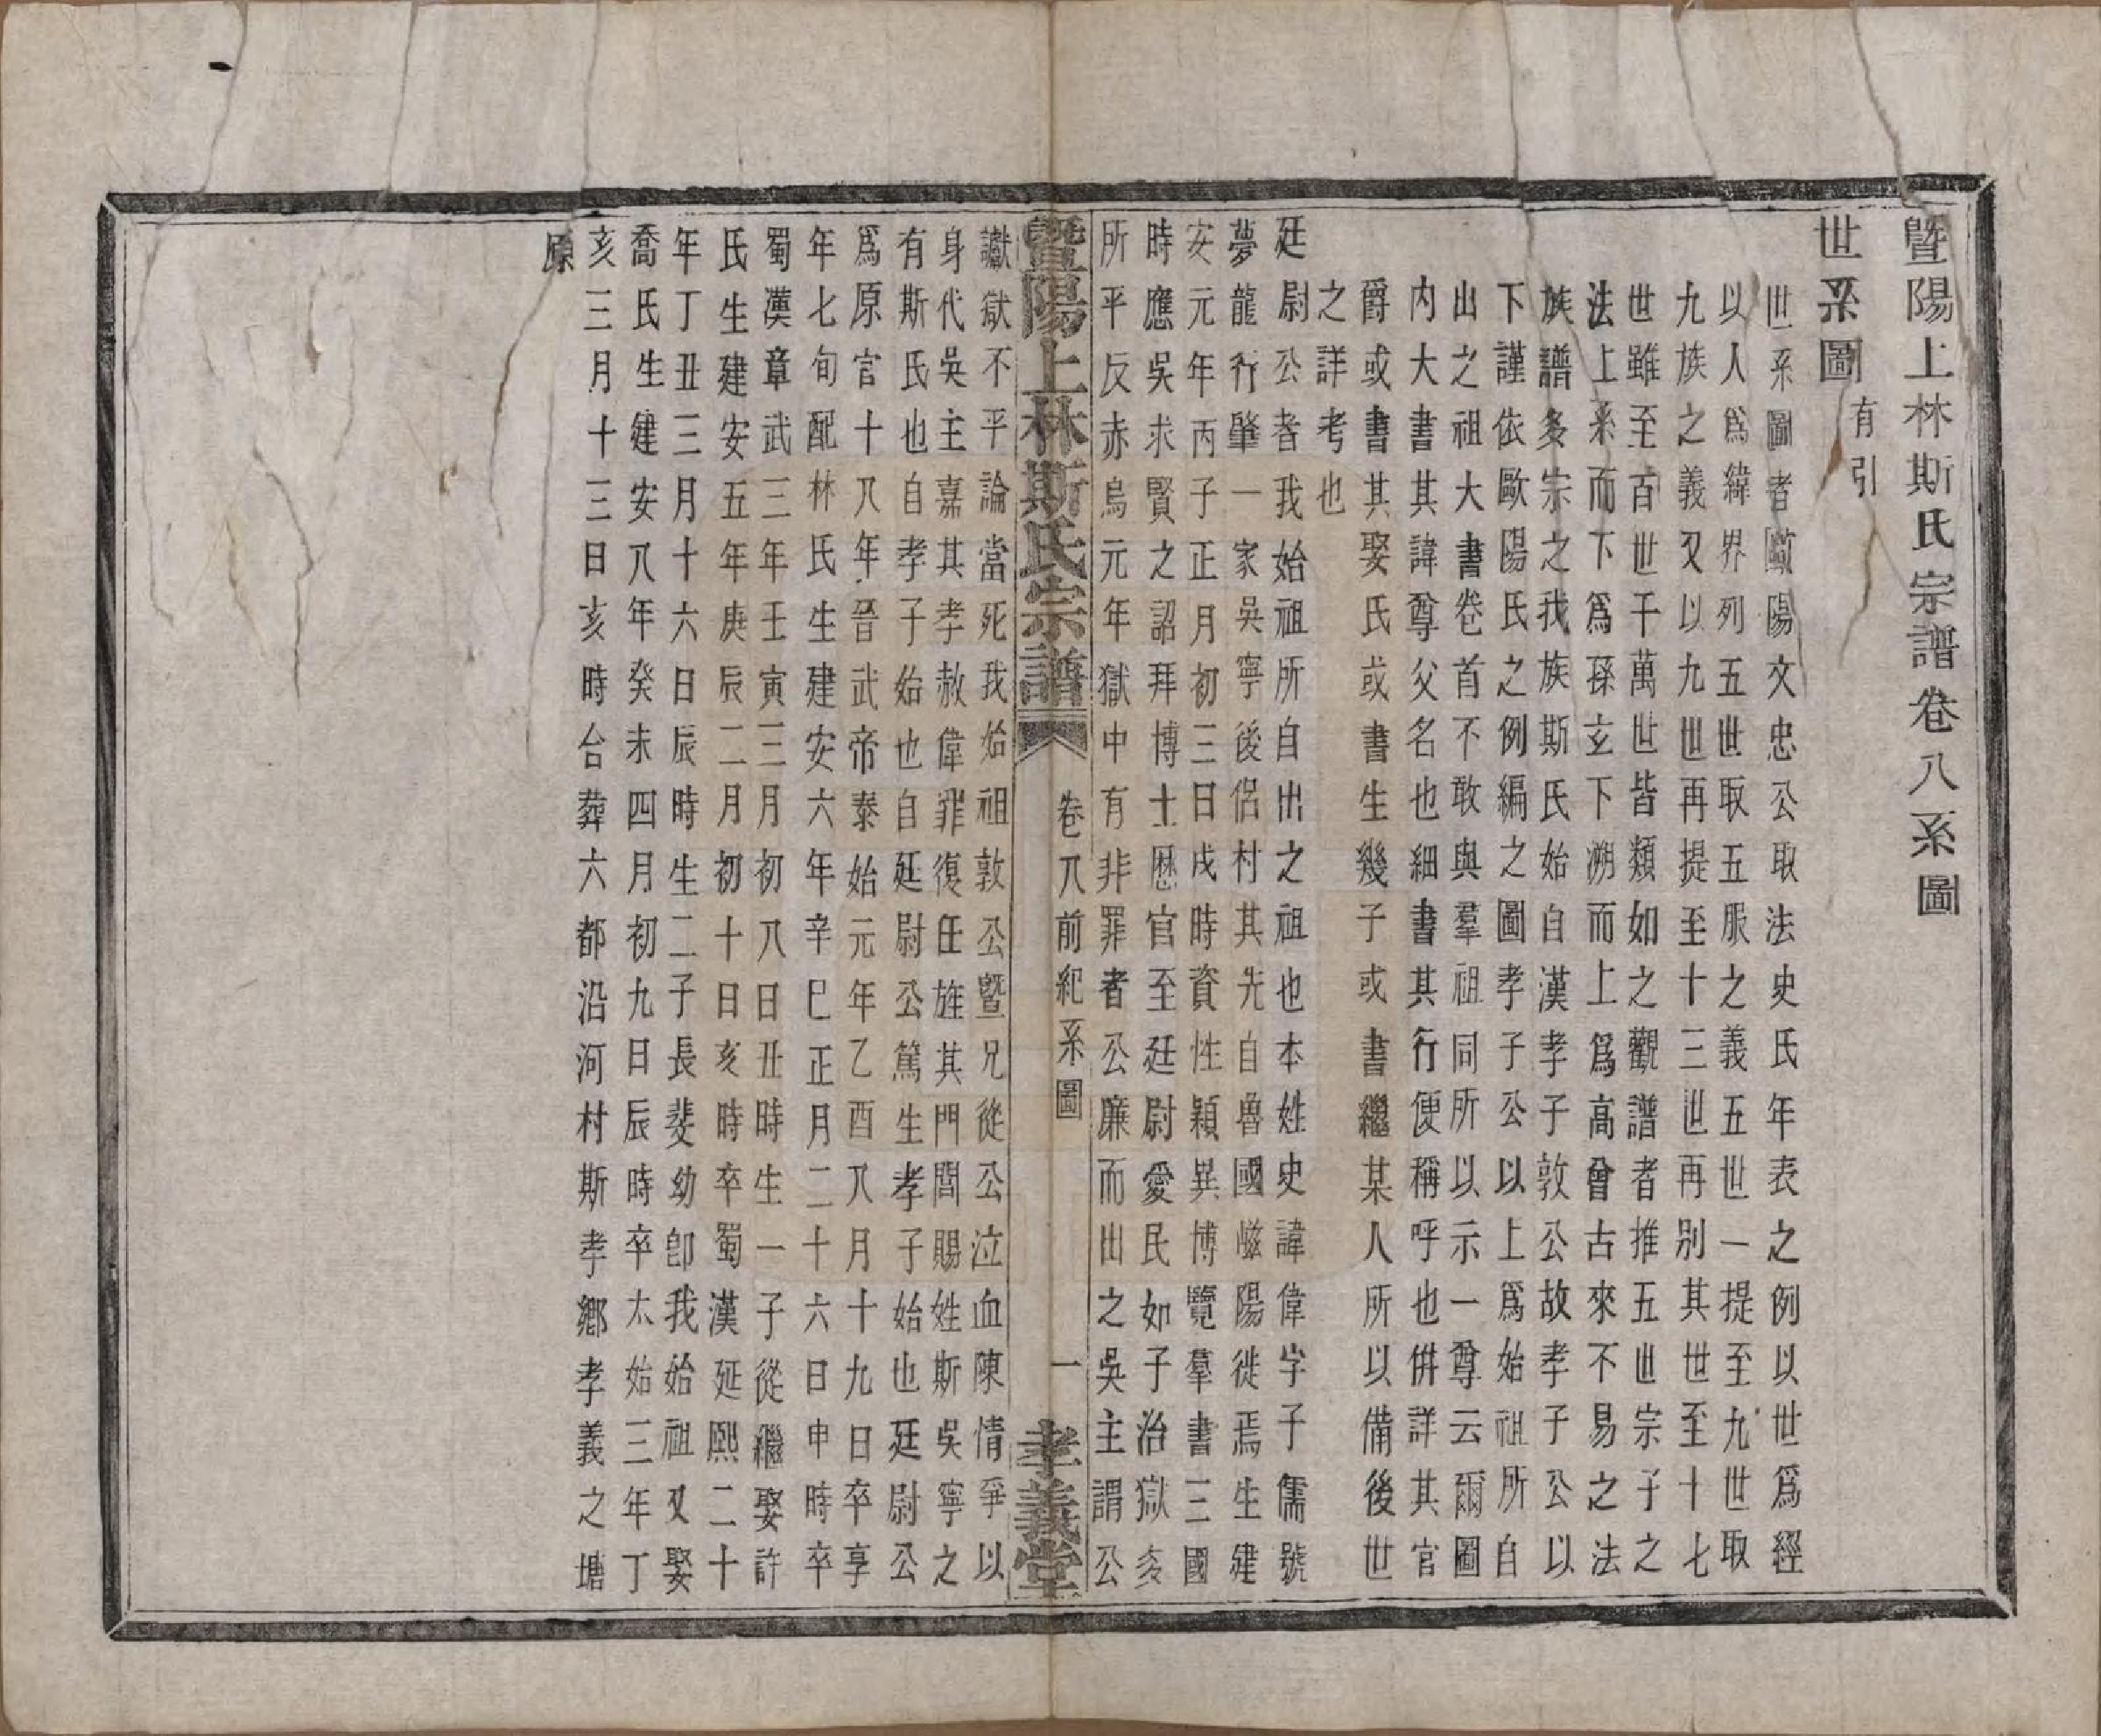 暨陽上林斯氏宗譜卷八系圖
世系圖有引
世系圖者歐陽文忠公取法史氏年表之例以世爲經
以人爲緯界列五世取五服之義五世一提至九世取
九族之義又以九世再提至十三世再別其世至十七
世雖至百世千萬世皆類如之觀譜者推五世宗子之
法上系而下爲孫玄下溯而上爲高曾古來不易之法
族譜多宗之我族斯氏始自漢孝子敦公故孝子公以
下謹依歐陽氏之例編之圖孝子公以上爲始祖所自
出之祖大書卷首不敢與羣祖同所以示一尊云爾圖
内大書其諱尊父名也細書其行便稱呼也併詳其官
爵或書其娶氏或書生幾子或書繼某人所以備後世
之詳考也
廷尉公者我始祖所自出之祖也本姓史諱偉字子儒號
夢龍行肇一家吳寧後侶村其先自魯國嶧陽徙焉生建
安元年丙子正月初三日戌時資性穎異博覽羣書三國
時應吳求賢之詔拜博士歷官至廷尉愛民如子治獄多
所平反赤烏元年獄中有非罪者公廉而出之吳主謂公
暨陽上林斯氏宗譜
卷八前紀系圖
一
孝義堂
讞獄不平論當死我始祖敦公暨兄從公泣血陳情爭以
身代吳主嘉其孝赦偉罪復任旌其門閭賜姓斯吳寧之
有斯氏也自孝子始也自廷尉公篤生孝子始也廷尉公
爲原官十八年晉武帝泰始元年乙酉八月十九日卒享
年七旬配林氏生建安六年辛巳正月二十六日申時卒
蜀漢章武三年壬寅三月初八日丑時生一子從繼娶許
氏生建安五年庚辰二月初十日亥時卒蜀漢延熙二十
年丁丑三月十六日辰時生二子長斐幼卽我始祖又娶
喬氏生建安八年癸未四月初九日辰時卒太始三年丁
亥三月十三日亥時合葬六都沿河村斯孝鄉孝義之塘
原